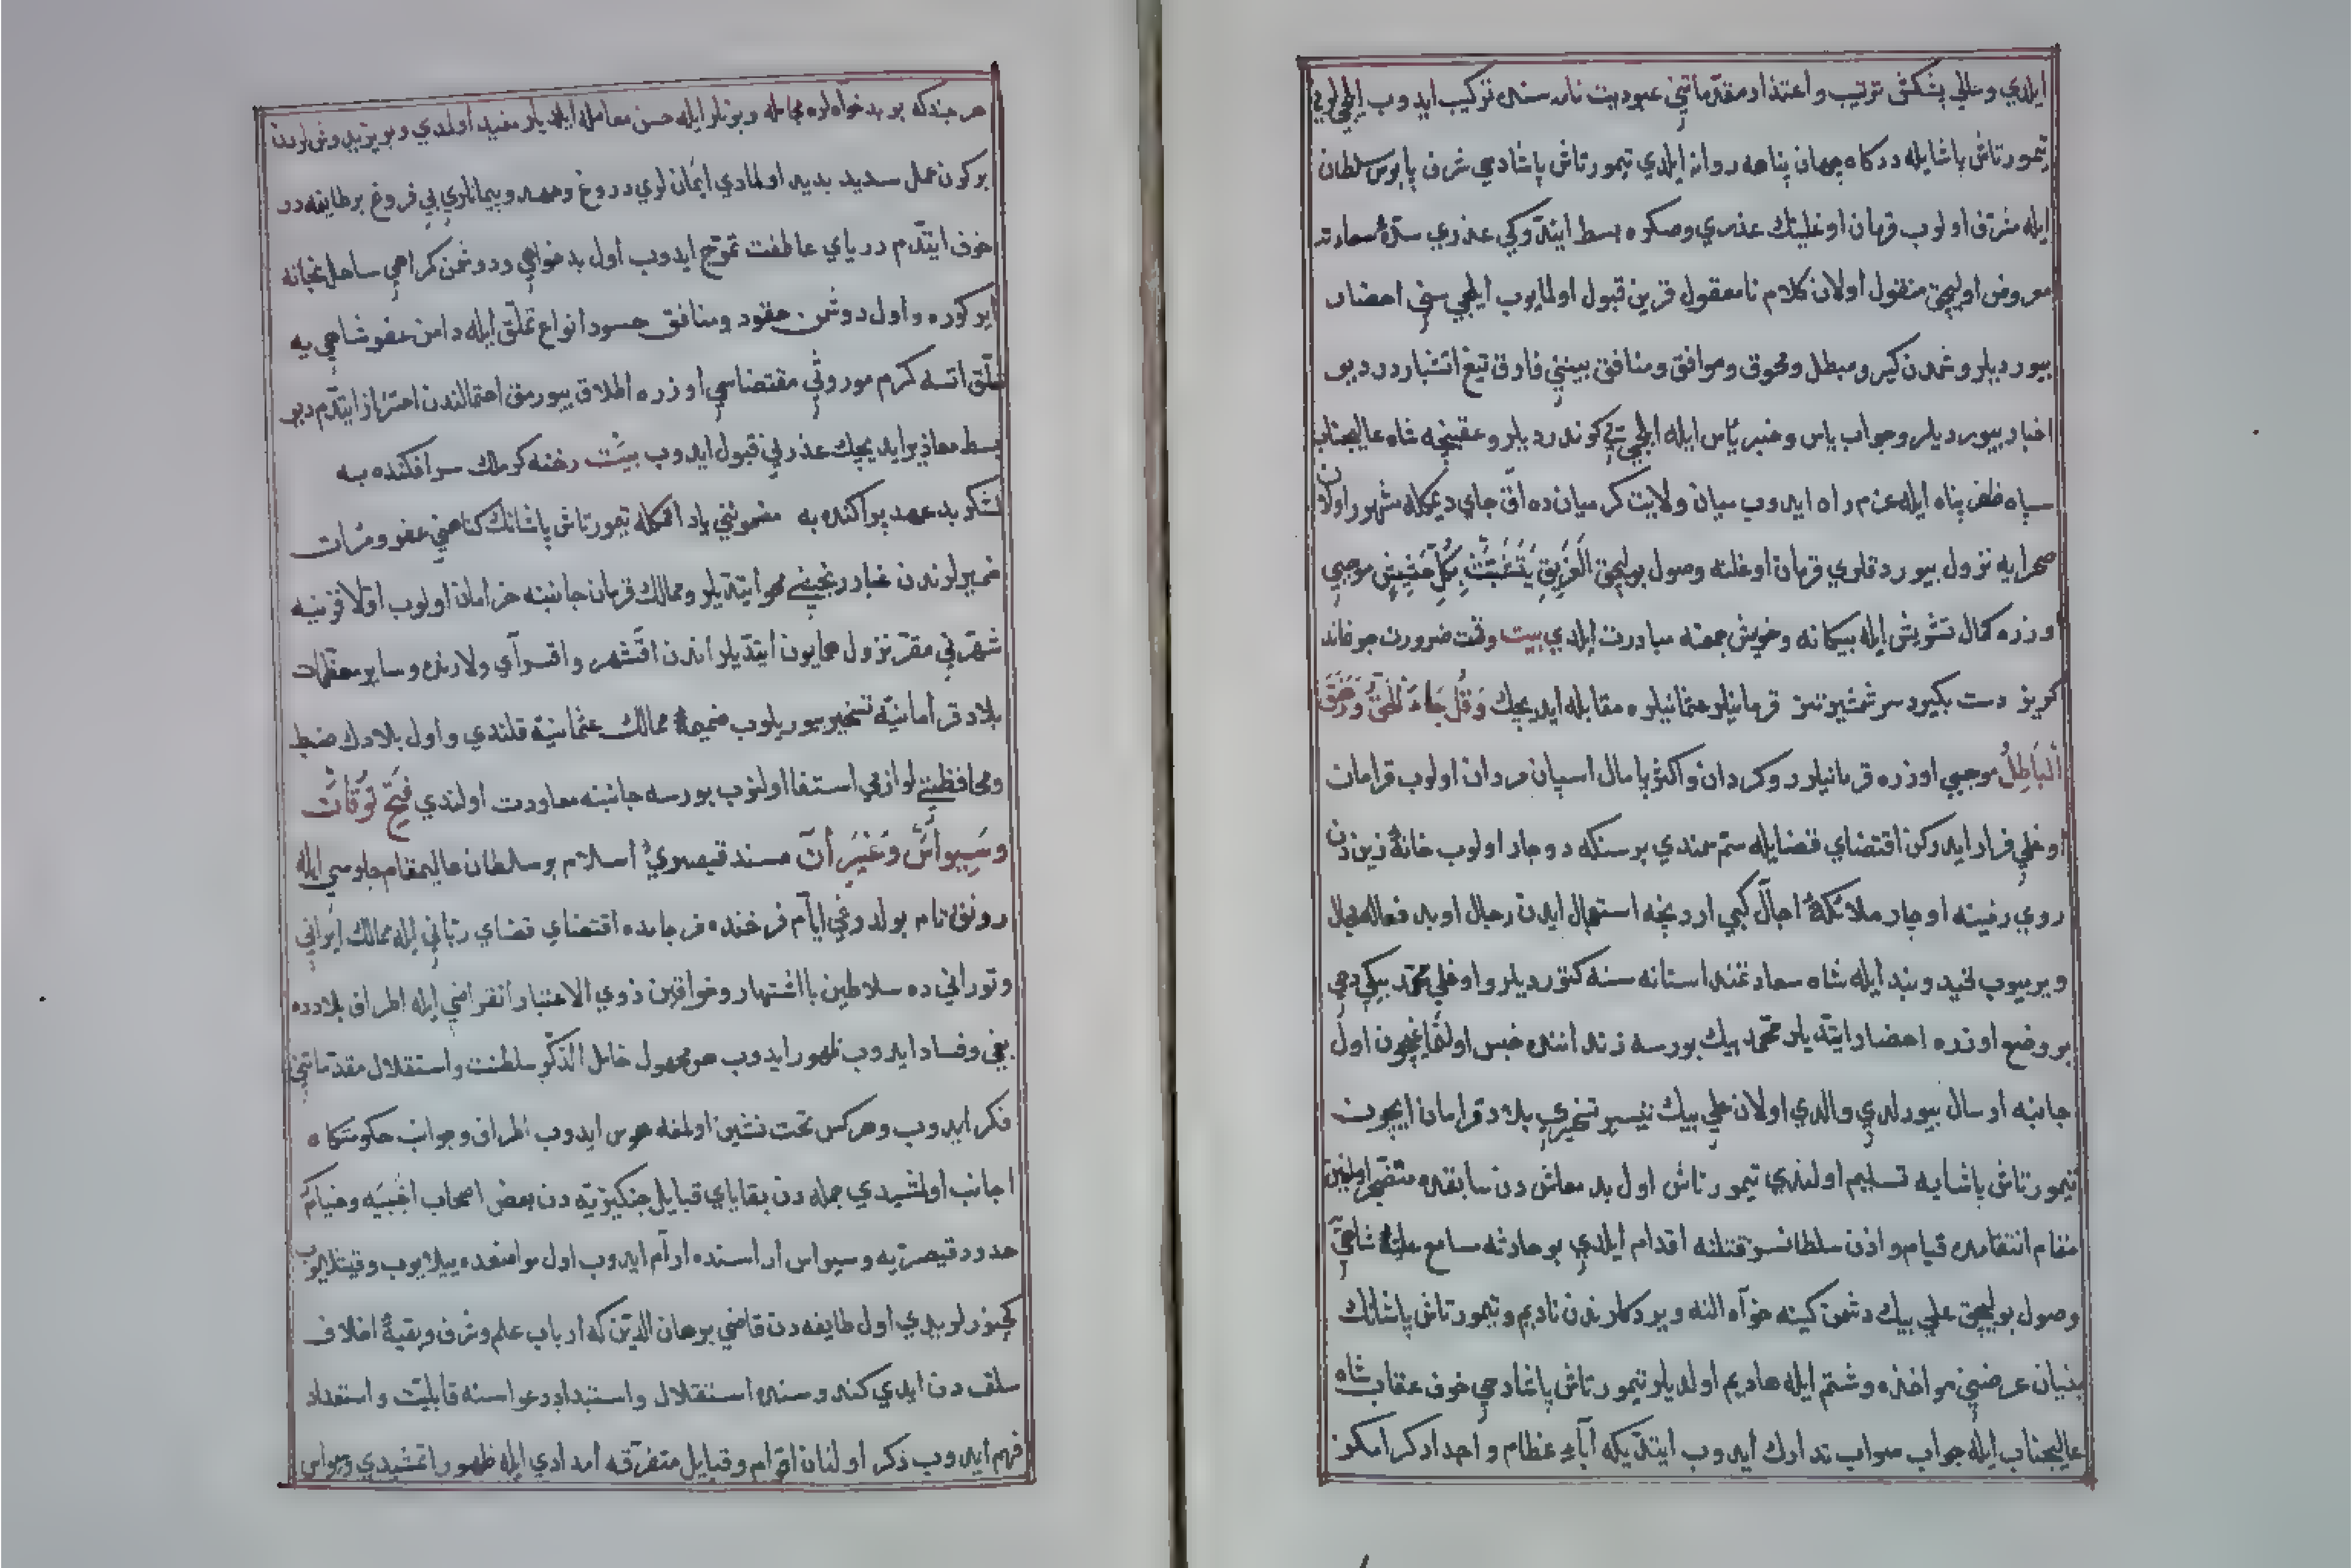 ايلدي وعالي پشكش ترتيب واعتذار مقدماتني عبوديت نامه سنده تركيب ايدوب ايلچيلريني
تيمورتاش پاشايله دركاه جهان پناهه روان ايلدي تيمورتاش پاشا دخي شرف پابوس سلطان
ايله مشرف اولوب قرمان اوغلينك عذري وصكوه بسط ايتدوكي عذري سدهٔ سعادته
معروض اوليجق منقول اولان كلام نامعقول قرين قبول اولمايوب ايلچي سني احضار
بيورديلر وشمدن كيرو مبطل ومحق وموافق ومنافق بينني فارق تيغ اتشبار در ديو
اخبار بيورديلر وجواب ياس وخبر يأس ايله ايلچي يي كوندرديلر وعقبنجه شاه عاليجناب
سپاه ظفر پناه ايله عزم راه ايدوب ميان ولايت كرميان ده اق جاي ديمكله مشهور اولان
صحرايه نزول بيوردقلري قرمان اوغلنه وصول بوليجق الغريق يتشبث بكل حشيش موجبي
اوزره كمال تشويش ايله بيكانه وخويش جمعنه مبادرت ايلدي بيت وقت ضرورت چو نماند
كريز دست بكيرد سر شمشير تيز قرمانيلر عثمانيلره مقابله ايديجك وقل جاء الحق وزهق
الباطل موجبي اوزره قرمانيلر روكردان واكثر پامال اسپان مردان اولوب قرامان
اوغلي فرار ايدركن اقتضاي قضايله ستم سمندي برسنكه دوچار اولوب خانهٔ زين دن
روي زمينه اوچار ملائكهٔ اجال كبي اردنجه استعجال ايدن رجال اوبد فعاله مجال
ويرميوب قيد وبند ايله شاه سعادتمند استانه سنه كتورديلر واوغلي محمد بيكي دخي
بر وضع اوزره احضار ايتديلر محمد بيك بورسه زنداننده حبس اولنماغيچون اول
جانبه ارسال بيورلدي والدي اولان علي بيك تيسير تسخير بلاد قرامان ايچون
تيمورتاش پاشايه تسليم اولندي تيمورتاش اول بد معاش دن سابقده متضجر اولمغين
مقام انتقامده قيام واذن سلطانسز قتلنه اقدام ايلدي بو حادثه مسامع عليهٔ شاهي يه
وصول بوليجق علي بيك دشمن كينه خواه النه ويردكلرندن نادم وتيمورتاش پاشانك
بنيان عرضني مواخذه وشتم ايله هادم اولديلر تيمورتاش پاشا دخي خوف عقاب شاه
عاليجناب ايله جواب صواب تدارك ايدوب ايتديكه آباء عظام واجداد كرامكز
هر چندكه بو بدخواه لره مجامله وبونلر ايله حسن معامله ايلديلر مفيد اولمدي وبو يزيد وش لردن
بركون عمل سديد بديد اولمادي ايمان لري دروغ وعهد وپيمانلري بي فروغ بر طايفه در
خوف ايتدم درياي عاطفت تموج ايدوب اول بدخواهي ودوشمن كراهي ساحل نجاته
ايركوره واول دوشمن حقود ومنافق حسود انواع تملق ايله دامن عفو شاهي يه
تعلق اتسه كرم موروثي مقتضاسي اوزره اطلاق بيورمق احتمالندن احتراز ايتدم ديو
بسط معاذير ايديجك عذرني قبول ايدوب بيت رخنه كر ملك سرافكنده به
لشكر بدعهد پراكنده به مضمونني ياد اتمكله تيمورتاش پاشانك كناهني عفو ومرآت
ضميرلرندن غبار رنجشي محو ايتديلر وممالك قرمان جانبنه خرامان اولوب اولا قونيه
شهرني مقر نزول همايون ايتديلر اندن اقشهر واقسراي ولارنده وساير معظمات
بلاد قرامانيه تسخير بيوريلوب ضميمهٔ ممالك عثمانيه قلندي واول بلادك ضبط
ومحافظتي لوازمي استيفا اولنوب بورسه جانبنه معاودت اولندي فتح توقات
وسيواس وغير آن مسند قيصري اسلام بو سلطان عاليمقام جلوسي ايله
رونق تام بولدوغي ايام فرخنده فرجامده اقتضاي قضاي رباني ايله ممالك ايراني
وتوراني ده سلاطين با اشتهار وخواقين ذوي الاعتبار انقراضي ايله اطراف بلادده
بغي وفساد ايدوب ظهور ايدوب هر مجهول خامل الذكر سلطنت واستقلال مقدماتني
فكر ايدوب وهركس تخت نشين اولمغه هوس ايدوب اطراف وجوانب حكومتكاه
اجانب اولمشيدي جمله دن بقاياي قبايل جنكيزيه دن بعض اصحاب اخبيه وخيام
حدود قيصريه وسيواس اراسنده ارام ايدوب اول مواضعده ييلايوب وقيشلايوب
كچنورلر ايدي اول طايفه دن قاضي برهان الدين كه ارباب علم وشرف وبقيهٔ اخلاف
سلف دن ايدي كندوسنده استقلال واستبداد دعواسنه قابليت واستعداد
فهم ايدوب ذكر اولنان اقوام وقبايل متفرقه امدادي ايله ظهور اتمشيدي وسيواس